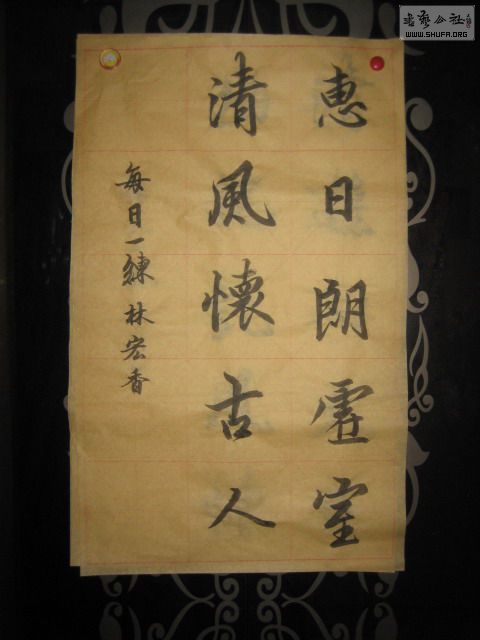 惠日朗虛室
清風懷古人
每日一練 林宏香
書藝公社
WWW.SHUFA.ORG